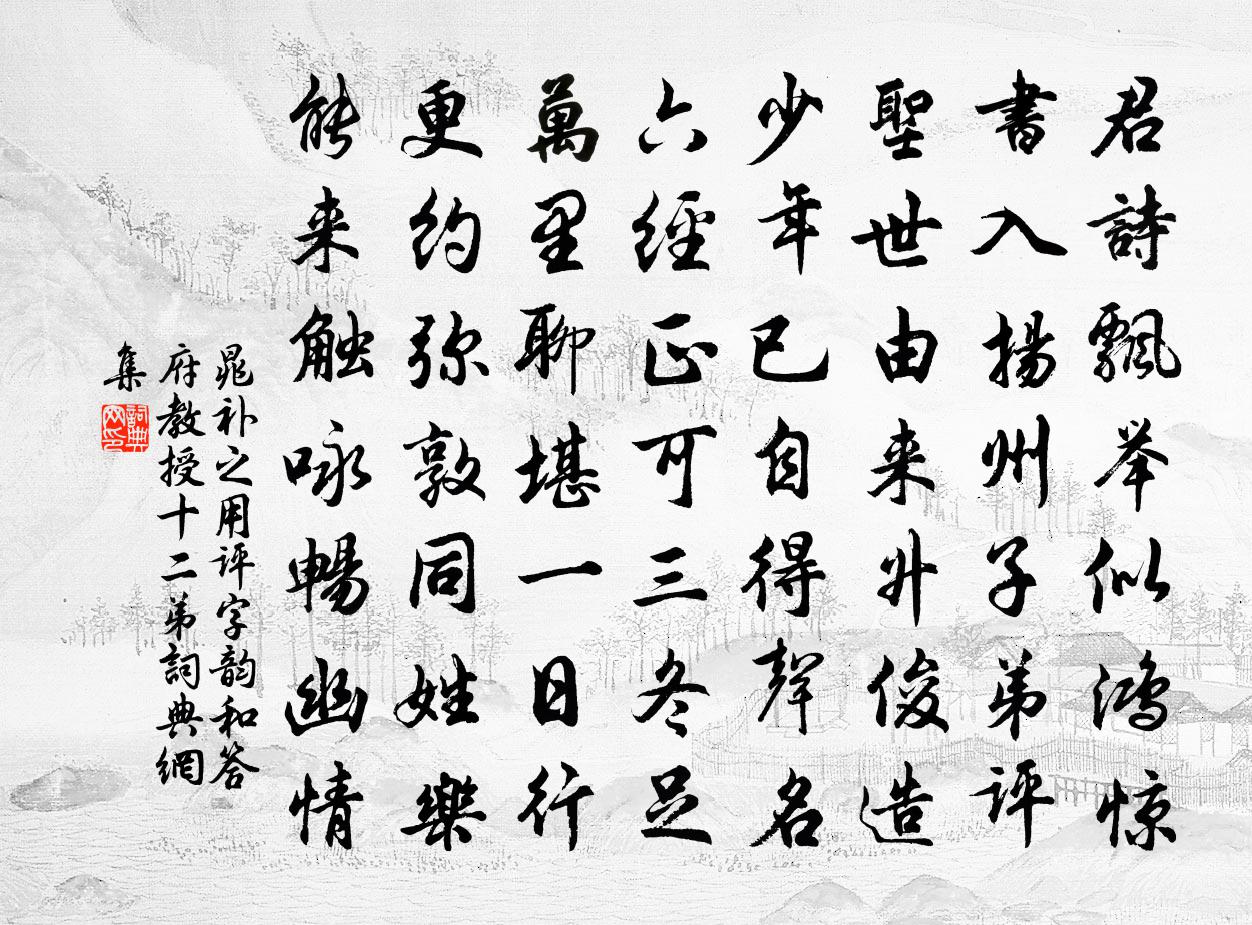 君詩飄举似鴻惊
書入揚州子弟評
聖世由来升俊造
少年已自得聲名
六經正可三冬足
萬里聊堪一日行
更约弥敦同姓樂
能来触咏暢幽情
晁补之用评字韵和答
府教授十二弟詞典網
集
詞典
网印